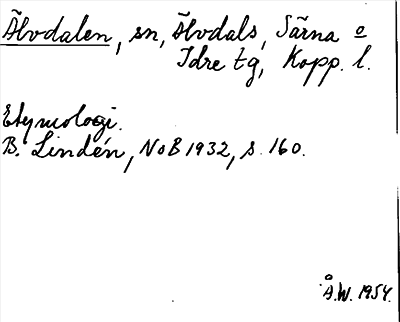 Älvdalen, sn, Älvdals, Särna o
Idre tg, Kopp. l.
Etymologi.
B. Lindén, NoB 1932, s. 160.
Å.W. 1954.